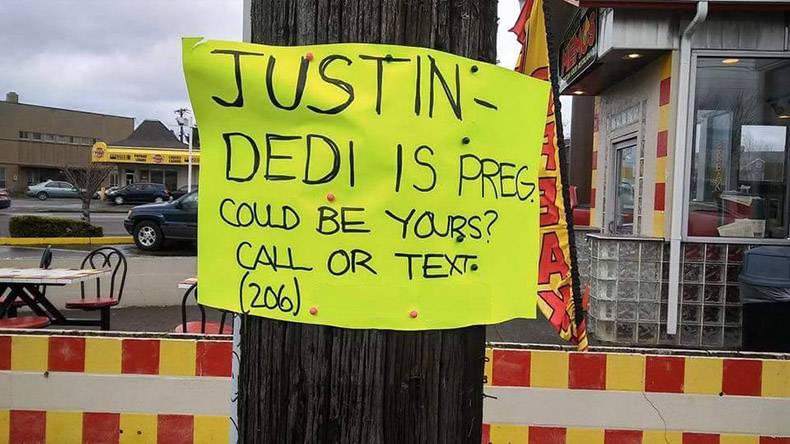 JUSTIN-
DEDI IS PREG.
COULD BE YOURS?
CALL OR TEXT
(206)